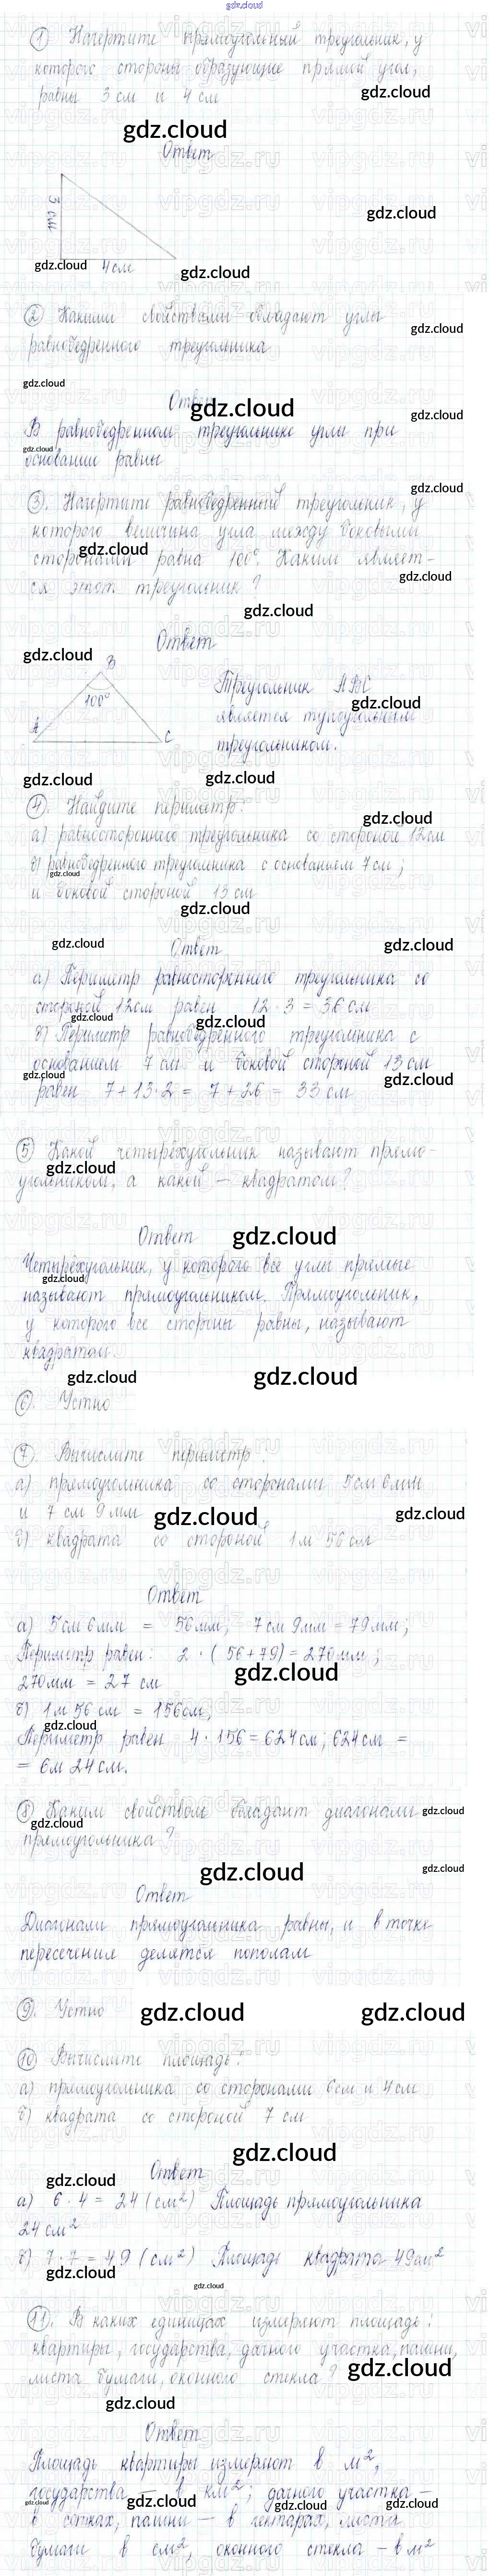 gdz.cloud
① Начертите прямоугольный треугольник, у
которого стороны образующие прямой угол,
равны 3 см и 4 см
gdz.cloud
gdz.cloud
Ответ
3 см
gdz.cloud
4 см
gdz.cloud
gdz.cloud
② Какими свойствами обладают углы
gdz.cloud
равнобедренного треугольника
gdz.cloud
Ответ
gdz.cloud
gdz.cloud
В равнобедренном треугольнике углы при
gdz.cloud
основании равны
gdz.cloud
③. Начертите равнобедренный треугольник, у
которого величина угла между боковыми
gdz.cloud
сторонами равна 100°. Каким являет-
gdz.cloud
ся этот треугольник?
gdz.cloud
Ответ
gdz.cloud
B
100°
A
C
Треугольник ABC
gdz.cloud
является тупоугольным
треугольником.
gdz.cloud
gdz.cloud
④. Найдите периметр:
gdz.cloud
а) равностороннего треугольника со стороной 12 см
б) равнобедренного треугольника с основанием 7 см;
gdz.cloud
и боковой стороной 13 см
gdz.cloud
gdz.cloud
Ответ
gdz.cloud
а) Периметр равностороннего треугольника со
стороной 12 см равен 12 · 3 = 36 см
gdz.cloud
gdz.cloud
б) Периметр равнобедренного треугольника с
основанием 7 см и боковой стороной 13 см
gdz.cloud
gdz.cloud
равен 7 + 13 · 2 = 7 + 26 = 33 см
⑤ Какой четырёхугольник называют прямо-
gdz.cloud
угольником, а какой — квадратом?
Ответ
gdz.cloud
Четырёхугольник, у которого все углы прямые
gdz.cloud
называют прямоугольником. Прямоугольник,
у которого все стороны равны, называют
квадратом.
gdz.cloud
gdz.cloud
⑥. Устно
⑦. Вычислите периметр:
а) прямоугольника со сторонами 5 см 6 мм
и 7 см 9 мм
gdz.cloud
gdz.cloud
б) квадрата со стороной 1 м 56 см
Ответ
а) 5 см 6 мм = 56 мм; 7 см 9 мм = 79 мм;
Периметр равен: 2 · (56 + 79) = 270 мм;
gdz.cloud
270 мм = 27 см
б) 1 м 56 см = 156 см;
gdz.cloud
Периметр равен 4 · 156 = 624 см; 624 см =
= 6 м 24 см.
⑧ Каким свойством обладают диагонали
gdz.cloud
gdz.cloud
прямоугольника?
gdz.cloud
gdz.cloud
Ответ
Диагонали прямоугольника равны, и в точке
пересечения делятся пополам
⑨. Устно
gdz.cloud
gdz.cloud
⑩ Вычислите площадь:
а) прямоугольника со сторонами 6 см и 4 см
б) квадрата со стороной 7 см
gdz.cloud
Ответ
gdz.cloud
а) 6 · 4 = 24 (см²) Площадь прямоугольника
24 см²
б) 7 · 7 = 49 (см²) Площадь квадрата 49 см²
gdz.cloud
gdz.cloud
⑪. В каких единицах измеряют площадь:
квартиры, государства, дачного участка, пашни,
gdz.cloud
листа бумаги, оконного стекла?
gdz.cloud
Ответ
Площадь квартиры измеряют в м²,
государства — в км²; дачного участка —
gdz.cloud
gdz.cloud
gdz.cloud
gdz.cloud
в сотках, пашни — в гектарах, листа
бумаги в см², оконного стекла — в м²